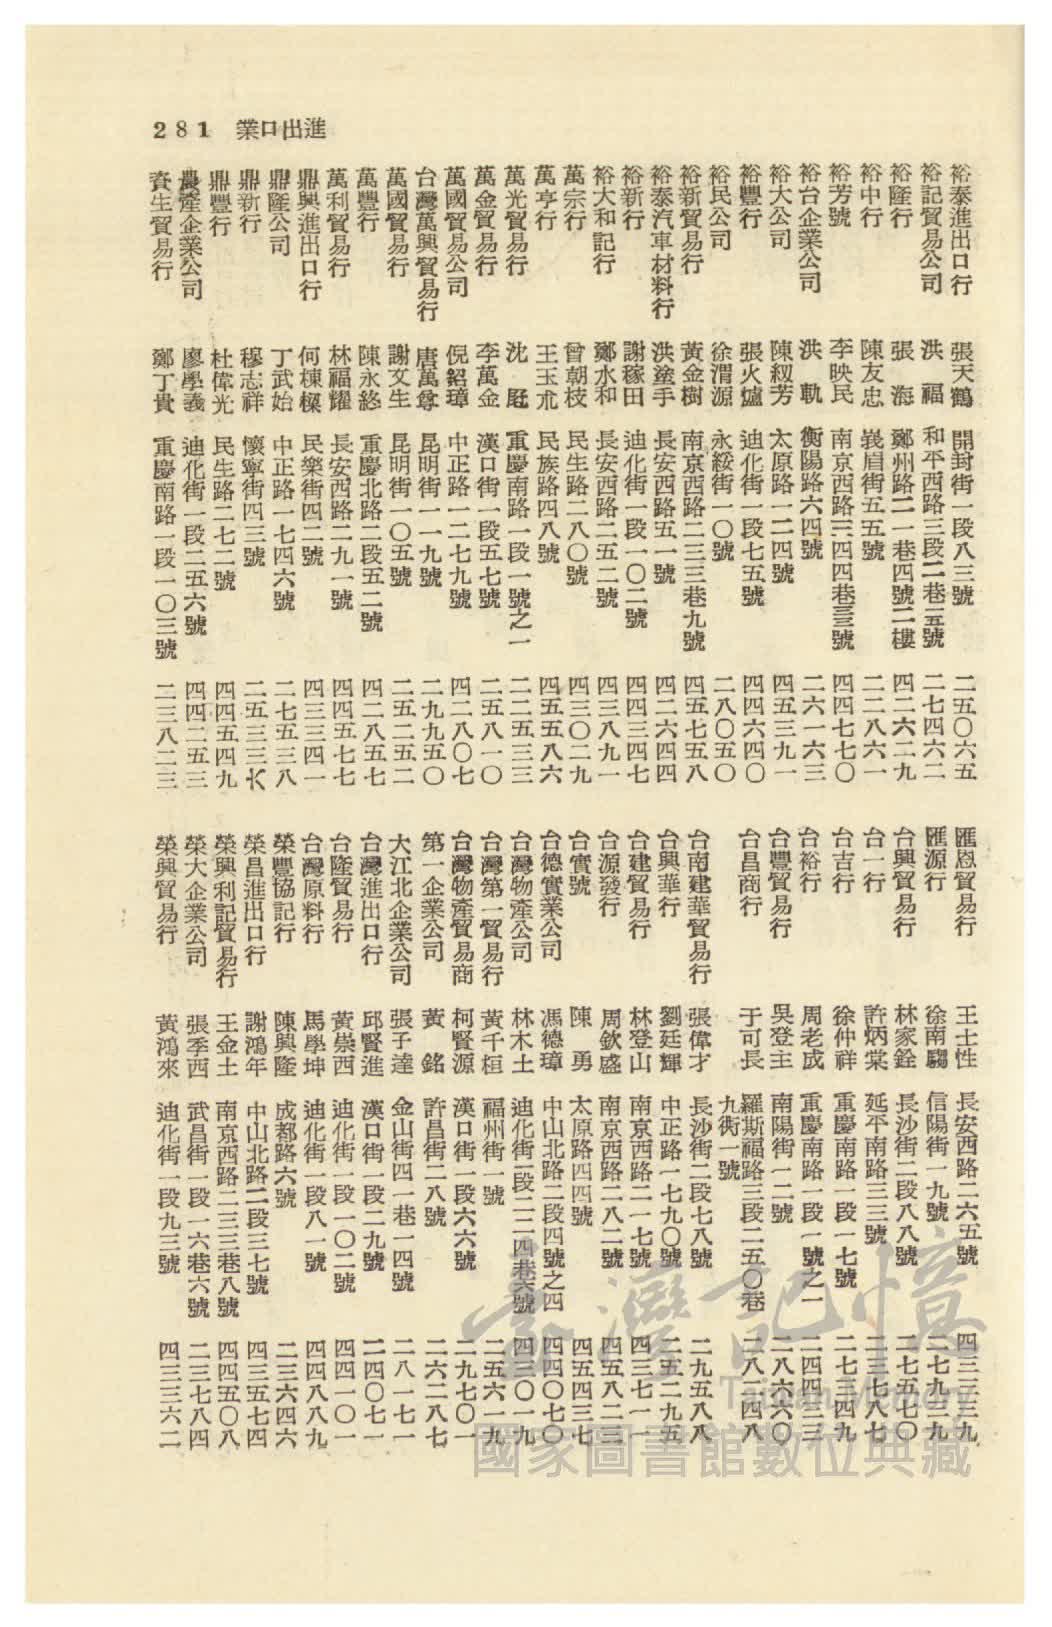 進出口業 281
裕泰進出口行 張天鶴 開封街一段八三號 二五〇六五
裕記貿易公司 洪 福 和平西路三段二巷五號 二七四六二
裕隆行 張 海 鄭州路二一巷四號二樓 四二六二九
裕中行 陳友忠 峩眉街五五號 二二八六一
裕芳號 李映民 南京西路三四四巷三三號 四四七七〇
裕台企業公司 洪 軌 衡陽路六四號 二六一六三
裕大公司 陳紉芳 太原路一二四號 四五三九一
裕豐行 張火爐 迪化街一段七五號 四四六四〇
裕民公司 徐渭源 永綏街一〇號 二八〇五〇
裕新貿易行 黃金樹 南京西路二三三巷九號 四五七五八
裕泰汽車材料行 洪塗手 長安西路五一號 四二六四四
裕新行 謝稼田 迪化街一段一〇二號 四四三四七
裕大和記行 鄭水和 長安西路二五二號 四三八九一
萬宗行 曾朝枝 民生路二八〇號 四三〇二九
萬亨行 王玉朮 民族路四八號 四五五八六
萬光貿易行 沈 重慶南路一段一號之一 二二五三三
萬金貿易行 李萬金 漢口街一段五七號 二五八一〇
萬國貿易公司 倪鉊璋 中正路一二七九號 四二八〇七
台灣萬興貿易行 唐萬尊 昆明街一一九號 二九九五〇
萬國貿易行 謝文生 昆明街一〇五號 二五二五二
萬豐行 陳永終 重慶北路二段五二號 四二八五七
萬利貿易行 林福耀 長安西路二九一號 四四五七七
鼎興進出口行 何棟樑 民樂街四二號 四三三四一
鼎隆公司 丁武始 中正路一七四六號 二七五三八
鼎新行 穆志祥 懷寧街四三號 二五三三六
鼎豐行 杜偉光 民生路二七二號 四四五四九
農產企業公司 廖學義 迪化街一段二五六號 四四二五三
資生貿易行 鄭丁貴 重慶南路一段一〇三號 二三八二三
匯恩貿易行 王士性 長安西路二六五號 四三三三九
匯源行 徐南騶 信陽街一九號 二七九二九
台興貿易行 林家銓 長沙街二段八八號 二七五七〇
台一行 許炳棠 延平南路三三號 二三七八七
台吉行 徐仲祥 重慶南路一段一七號 二七七四九
台裕行 周老成 重慶南路一段一號之一 二四四三三
台豐貿易行 吳登主 南陽街一二號 二八六六〇
台昌商行 于可長 羅斯福路三段二五〇巷九衖一號 二八二四八
台南建華貿易行 張偉才 長沙街二段七八號 二九五八八
台興華行 劉廷輝 中正路一七九〇號 二五二九五
台建貿易行 林登山 南京西路二一七號 四三七一一
台源發行 周欽盛 南京西路二八二號 四五八二三
台實號 陳 勇 太原路四四號 四五四三七
台德實業公司 馮德璋 中山北路二段四號之四 四四〇七〇
台灣物產公司 林木土 迪化街一段二二四巷六號 四三〇一九
台灣第一貿易行 黃千桓 福州街一號 二五六一九
台灣物產貿易商 柯賢源 漢口街一段六六號 二九七〇一
第一企業公司 黃 銘 許昌街二八號 二六二八七
大江北企業公司 張子達 金山街四一巷一四號 二八一七一
台灣進出口行 邱賢進 漢口街一段二九號 二四〇七一
台隆貿易行 黃崇西 迪化街一段一〇二號 四四一〇一
台灣原料行 馬學坤 迪化街一段八一號 四四八八九
榮豐協記行 陳興隆 成都路六號 二三六四六
榮昌進出口行 謝鴻年 中山北路二段三七號 四三五七四
榮興利記貿易行 王金土 南京西路二三三巷八號 四四五〇八
榮大企業公司 張季西 武昌街一段一六巷六號 二三七八四
榮興貿易行 黃鴻來 迪化街一段九三號 四三三六二
臺灣記憶
Taiwan Memory
國家圖書館數位典藏